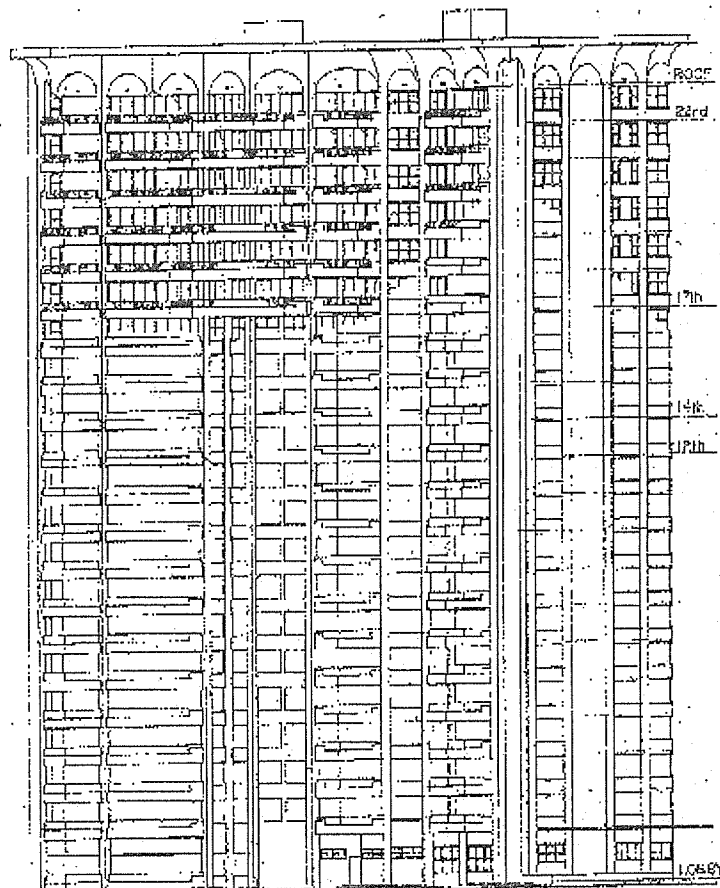 ROOF
22nd
17th
14th
12th
LOBBY